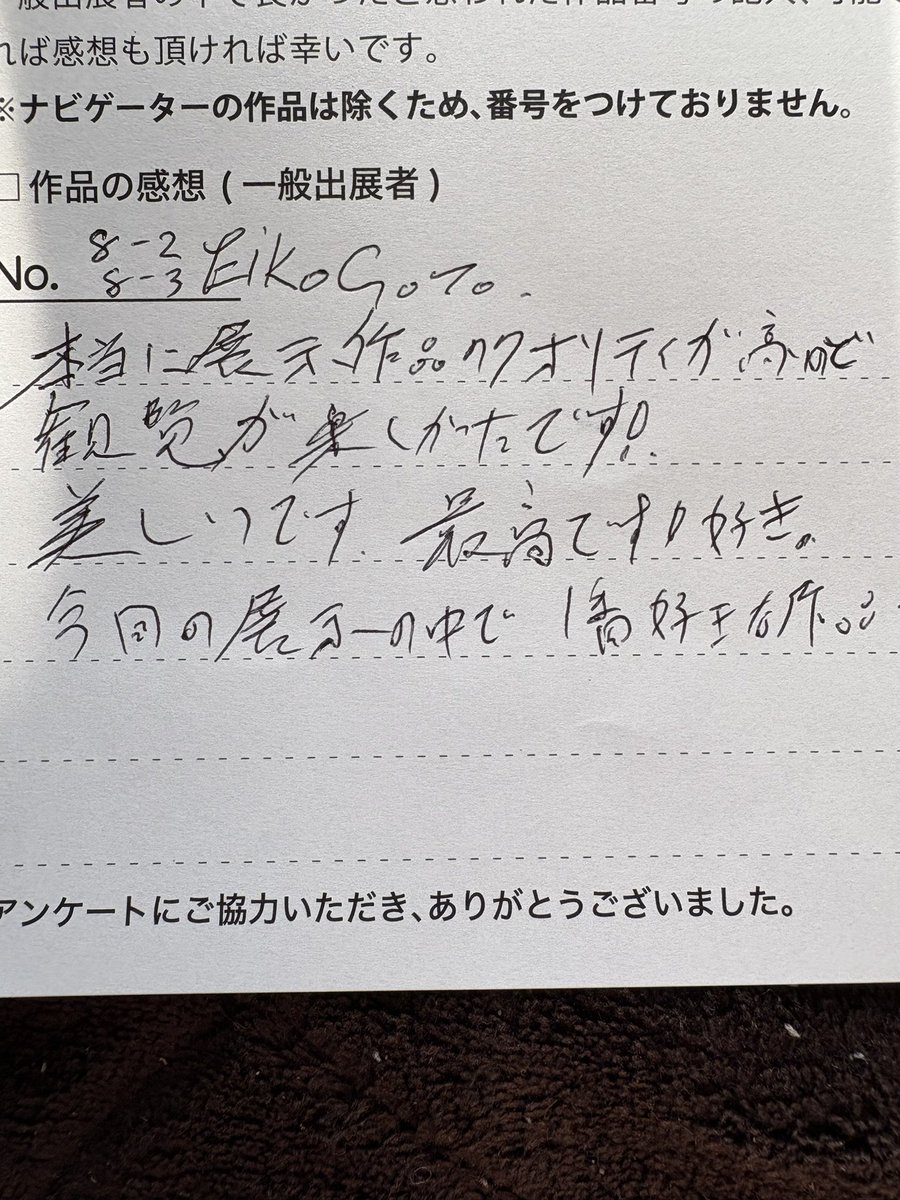 般出展者の中で良かったと思われた作品番号の記入、可能
れば感想も頂ければ幸いです。
※ナビゲーターの作品は除くため、番号をつけておりません。
□作品の感想 ( 一般出展者 )
8-2
No. 8-3 Eiko Goto.
本当に展示作品のクオリティが高いで
観覧が楽しかったです!
美しいです. 最高です! 好き。
今回の展示の中で 1番好きな作品
アンケートにご協力いただき、ありがとうございました。